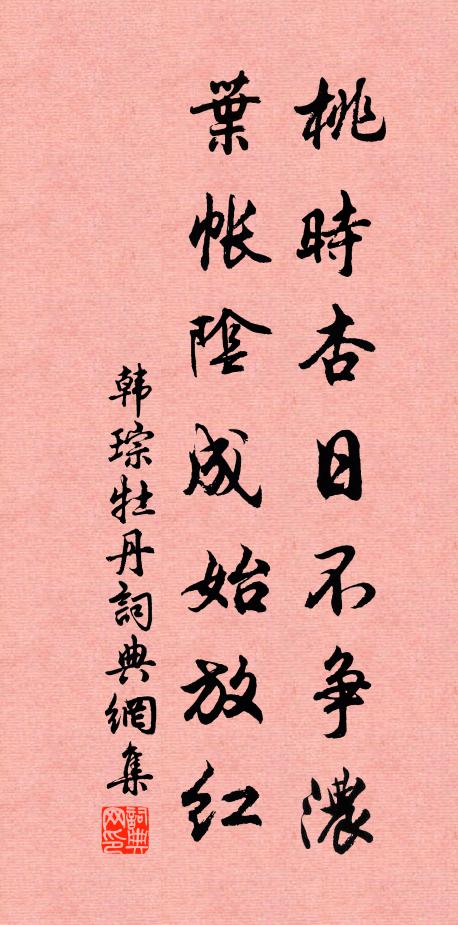 桃時杏日不争濃
葉帐陰成始放红
韩琮牡丹詞典網集
詞典网印